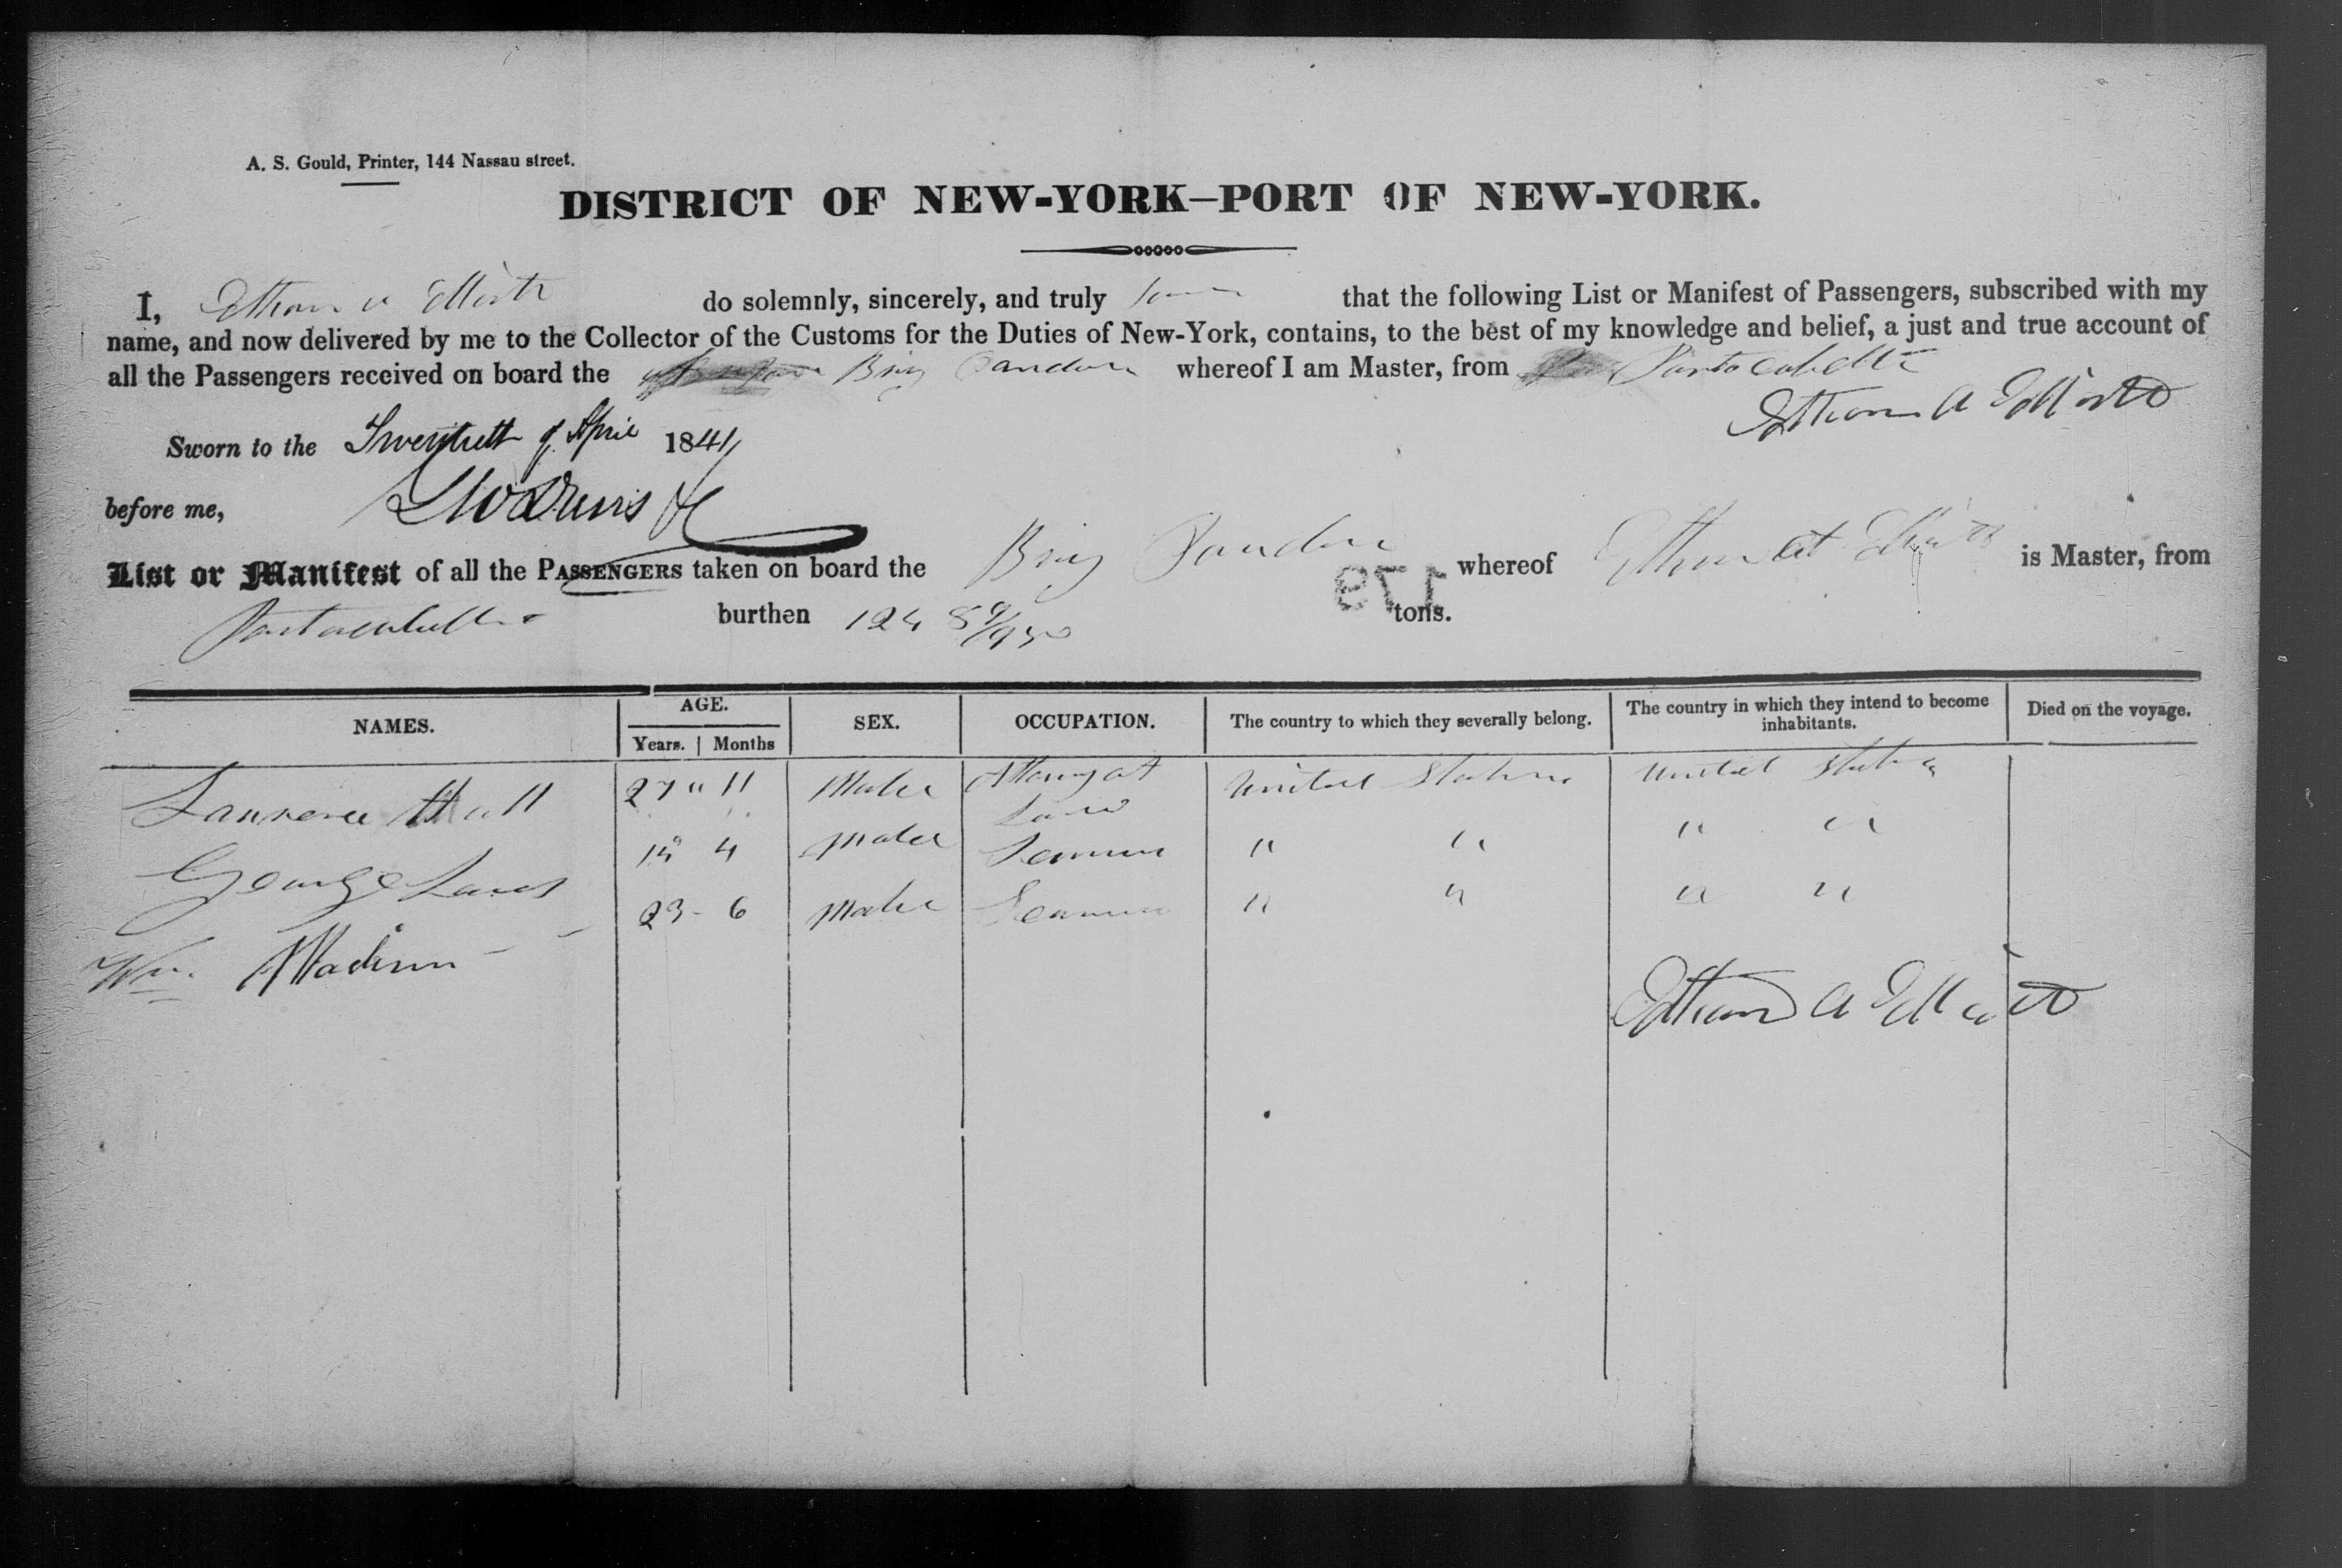 A. S. Gould, Printer, 144 Nassau street.
DISTRICT OF NEW-YORK—PORT OF NEW-YORK.
I, Ethan A Elliott do solemnly, sincerely, and truly that the following List or Manifest of Passengers, subscribed with my
name, and now delivered by me to the Collector of the Customs for the Duties of New-York, contains, to the best of my knowledge and belief, a just and true account of
all the Passengers received on board the Brig Pandora whereof I am Master, from Portocabello
Ethan A Elliott
Sworn to the Twentieth of April 1841
before me,
List or Manifest of all the PASSENGERS taken on board the Brig Pandora whereof Ethan A Elliott is Master, from
Portocabello burthen 124 tons.
179
NAMES. AGE. SEX. OCCUPATION. The country to which they severally belong. The country in which they intend to become inhabitants. Died on the voyage.
Years. Months
Lawrence Hall 27 " 11 Male Attorney at Law United States United States
George 4 Male Seaman " " " "
Wm. Madison 23 - 6 Male Seaman " " " "
Ethan A Elliott